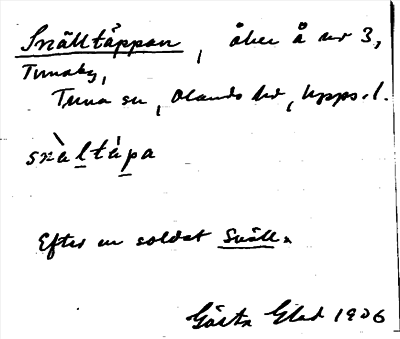 Snälltäppan, åker å nr 3,
Tunaby,
Tuna sn, Olands hd, Upps. l.
snàltápa
Efter en soldat Snäll.
Gösta 1906